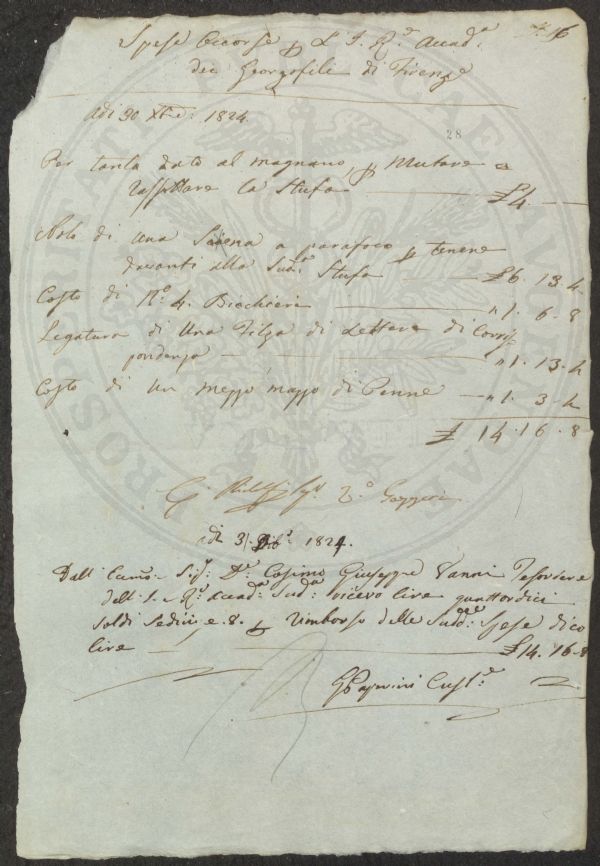 N. 16
Spese Occorse p L' I. R.e Accad.a
dei Georgofili di Firenze
Adi 30 Xbre 1824.
28
Per tanto dato al magnano, p Mutare e
rassettare la Stufa £ 4. —
Nolo di Una Scena a parafoco p tenere
davanti alla Sud.a Stufa £ 6. 13. 4
Costo di N.o 4. Bicchieri " 1. 6. 8
Legatura di Una Filza di Lettere di Corris
pondenza " 1. 13. 4
Costo di Un mezzo mazzo di Penne " 1. 3. 4
£ 14. 16. 8
G.
adi 31 Dib.e 1824.
Dall' Sig.r D.r Cosimo Giuseppe Vanni Tesoriere
dell' I. e R.e Accad.a Sud.a ricevo lire quattordici
soldi sedici e. 8. p rimborso delle Sudd.e Spese dico
lire £ 14. 16. 8
Cust.e
PROSPERITATI PUBLICAE AUGENDAE